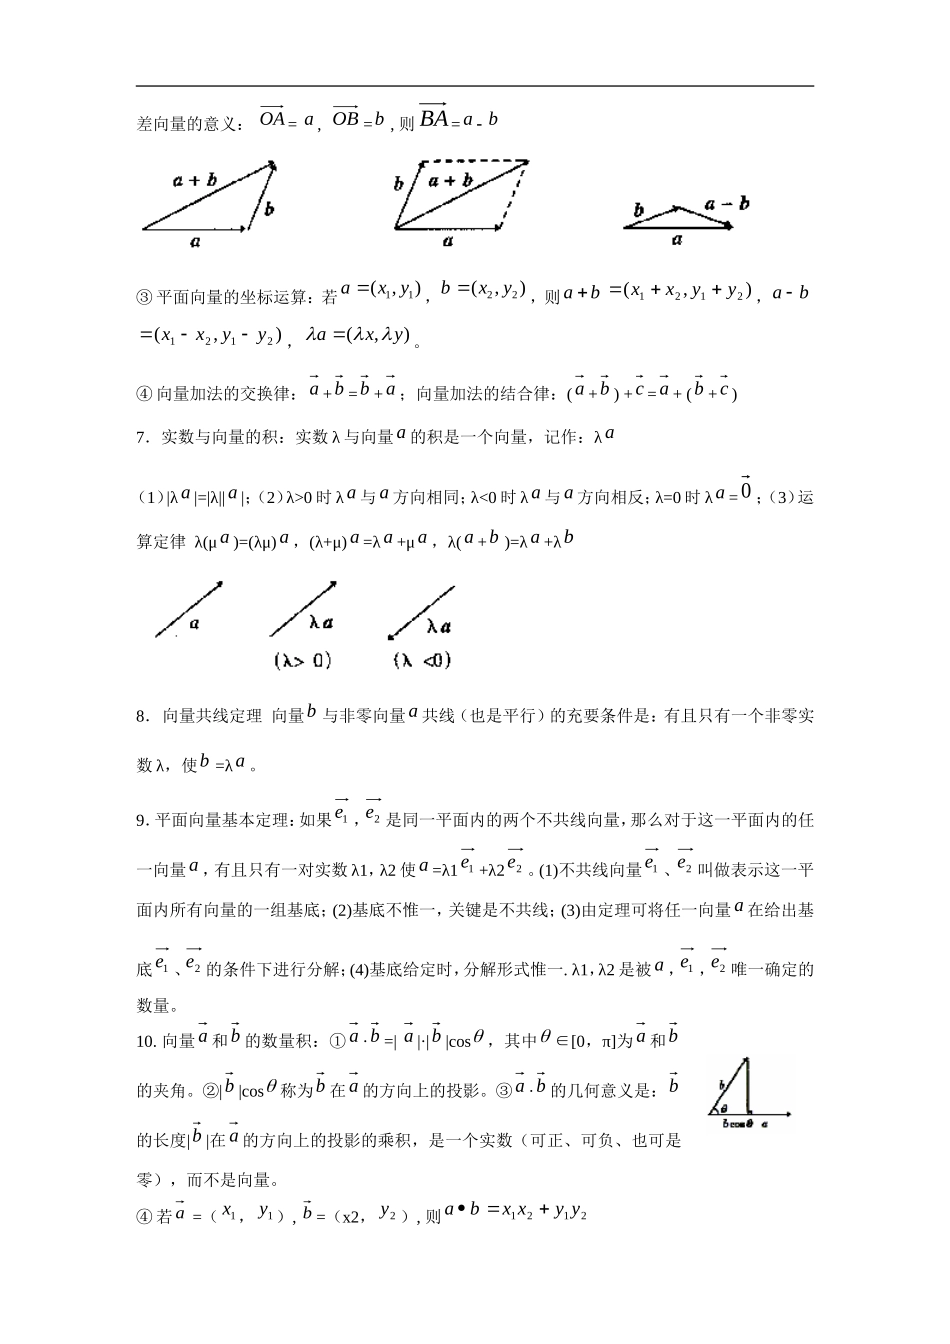 差向量的意义： OA = a , OB = b , 则 BA = a - b
a + b b a
b a + b a
b a − b a
③平面向量的坐标运算：若 a =(x₁,y₁)， b =(x₂,y₂)，则 a + b =(x₁ + x₂,y₁ + y₂)， a − b
=(x₁ − x₂,y₁ − y₂)， λa =(λx,λy)。
④向量加法的交换律： a + b = b + a ；向量加法的结合律：( a + b ) + c = a + ( b + c )
7．实数与向量的积：实数 λ 与向量 a 的积是一个向量，记作：λ a
（1）|λ a |=|λ|| a |；（2）λ>0 时 λ a 与 a 方向相同；λ<0 时 λ a 与 a 方向相反；λ=0 时 λ a = 0 ；（3）运
算定律 λ(μ a )=(λμ) a ，(λ+μ) a =λ a +μ a ，λ( a + b )=λ a +λ b
a λa λa
(λ> 0) (λ <0)
8．向量共线定理 向量 b 与非零向量 a 共线（也是平行）的充要条件是：有且只有一个非零实
数 λ，使 b =λ a 。
9．平面向量基本定理：如果 e₁ ， e₂ 是同一平面内的两个不共线向量，那么对于这一平面内的任
一向量 a ，有且只有一对实数 λ1，λ2 使 a =λ1 e₁ +λ2 e₂ 。(1)不共线向量 e₁ 、 e₂ 叫做表示这一平
面内所有向量的一组基底；(2)基底不惟一，关键是不共线；(3)由定理可将任一向量 a 在给出基
底 e₁ 、 e₂ 的条件下进行分解；(4)基底给定时，分解形式惟一. λ1，λ2 是被 a ， e₁ ， e₂ 唯一确定的
数量。
10. 向量 a 和 b 的数量积：① a · b =| a |·| b |cosθ，其中 θ∈[0，π]为 a 和 b
的夹角。②| b |cosθ 称为 b 在 a 的方向上的投影。③ a · b 的几何意义是： b
的长度| b |在 a 的方向上的投影的乘积，是一个实数（可正、可负、也可是
零），而不是向量。
b θ
b cosθ a
④若 a =（ x₁， y₁）, b =（x2， y₂）, 则 a • b = x₁x₂ + y₁y₂